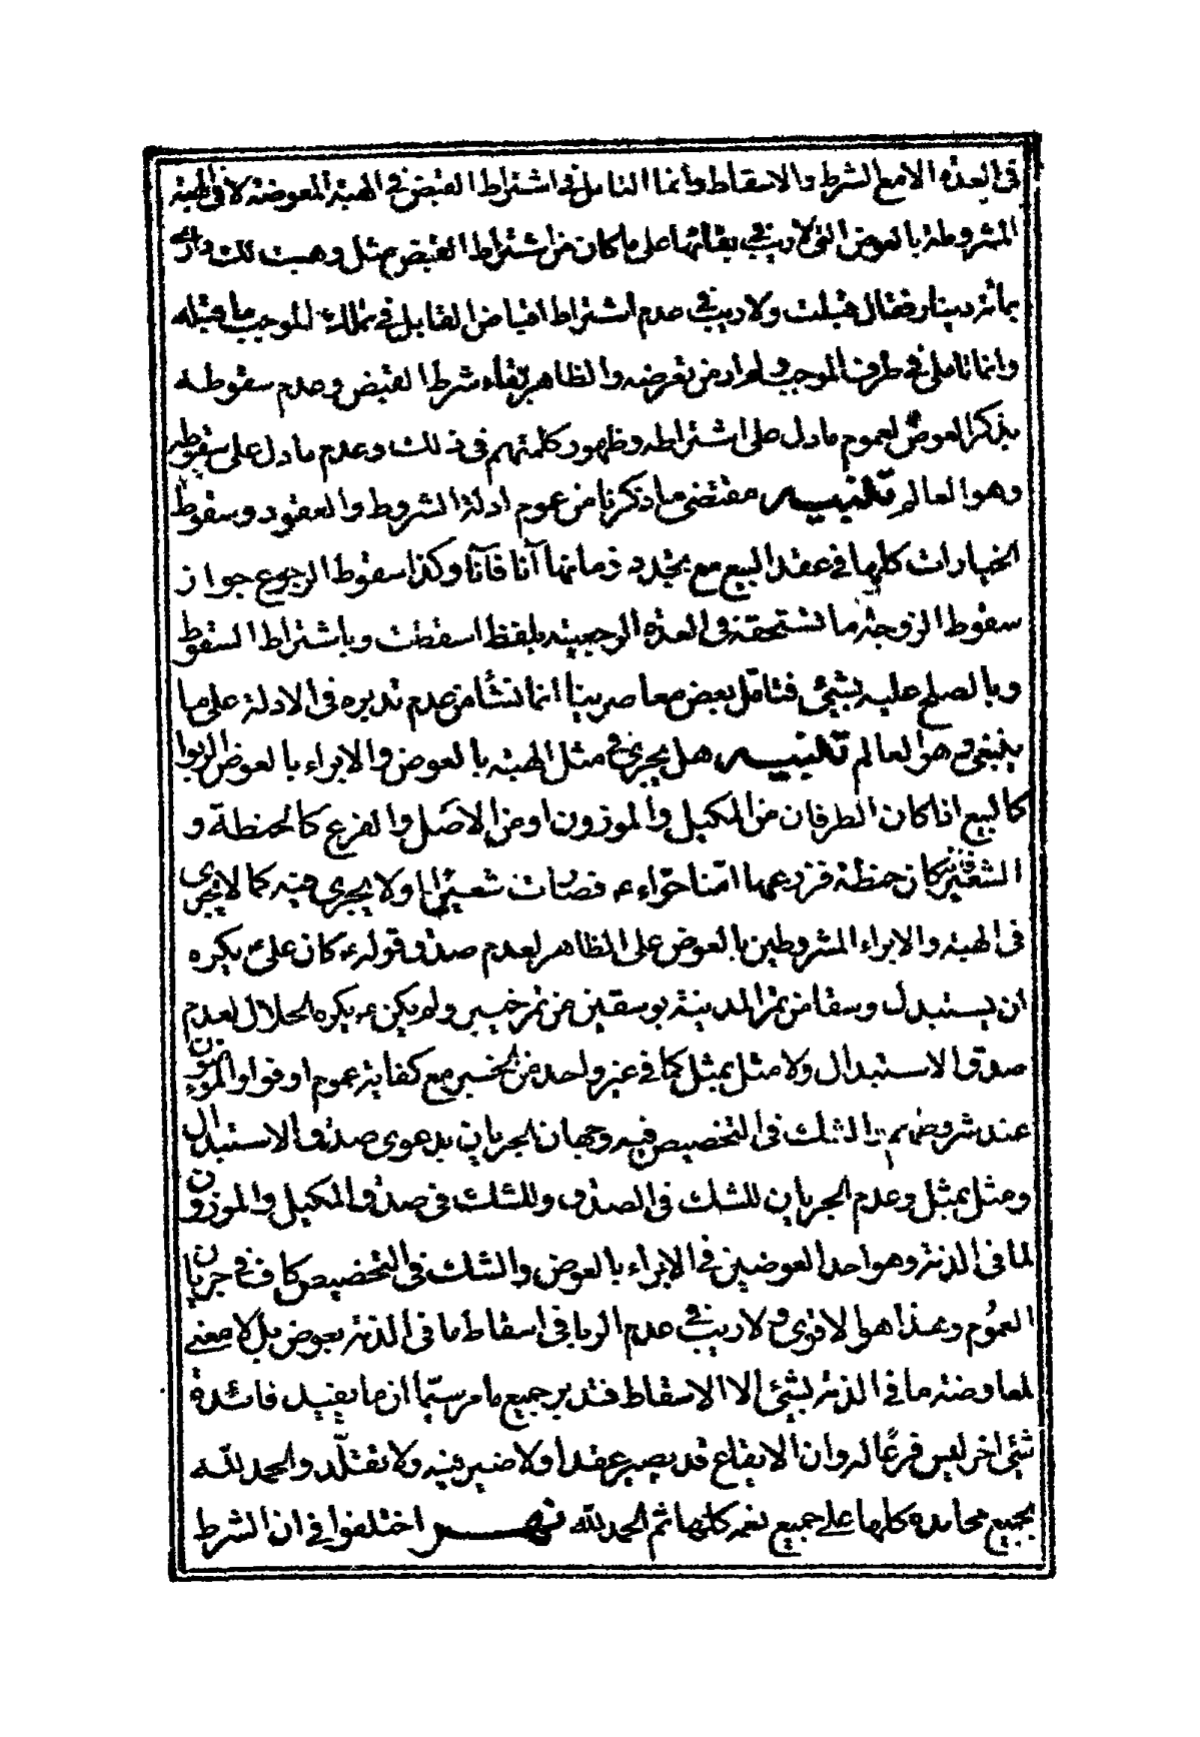 في العدة الا مع الشرط والاسقاط وانما التامل في اشتراط القبض في الهبة المعوضة لا في الهبة
المشروطة بالعوض التي لا ريب في بقائها على ما كان من اشتراط القبض مثل وهبت لك
بمائة دينار فقال قبلت ولا ريب في عدم اشتراط اقباض القابل في تملك الموجب ما قبله
وانما تاملي في طرف الموجب والظاهر بقاء شرط القبض وعدم سقوطه
بذكر العوض لعموم ما دل على اشتراطه وظهور كلمتهم في ذلك وعدم ما دل على سقوطه
وهو العالم تنبيه مقتضى ما ذكرنا من عموم ادلة الشروط والعقود وسقوط
الخيارات كلها في عقد البيع مع تجدد زمانها آنا فآنا وكذا سقوط الرجوع جواز
سقوط الزوجة ما تستحقه في العدة الرجعية بلفظ اسقطت وباشتراط السقوط
وبالصلح عليه بشئ فتامل بعض معاصرينا انما نشأ من عدم تدبره في الادلة على ما
ينبغي وهو العالم تنبيه هل يجري في مثل الهبة بالعوض والابراء بالعوض الربوا
كالبيع اذا كان الطرفان من المكيل والموزون او من الاصل والفرع كالحنطة و
الشعير كان حنطة فزرعها امنا حواء ع فصارت شعيرا اولا يجري فيه كما لا يجري
في الهبة والابراء المشروطين بالعوض على الظاهر لعدم صدق قوله ع كان علي ع يكره
ان يستبدل وسقا من تمر المدينة بوسقين من تمر خيبر ولم يكن ع يكره الحلال لعدم
صدق الاستبدال ولا مثل بمثل كما في غير واحد من الخبر مع كفاية عموم اوفوا والمؤمنون
عند شروطهم الشك في التخصيص فيه وجهان الجريان بدعوى صدق الاستبدال
ومثل بمثل وعدم الجريان للشك في الصدق وللشك في صدق المكيل والموزون
لما في الذمة وهو احد العوضين في الابراء بالعوض والشك في التخصيص كاف في جريان
العموم وهذا هو الاقوى ولا ريب في عدم الربا في اسقاط ما في الذمة بعوض بل لا معنى
لمعاوضة ما في الذمة بشئ الا الاسقاط فتدبر جميع ما مر سيما ان ما يفيد فائدة
شئ اخر ليس فرعا له وان الايقاع قد يصير عقدا ولا ضير فيه ولا تقلد والحمد لله
بجميع محامده كلها على جميع نعمه كلها ثم الحمد لله نهـر اختلفوا في ان الشرط